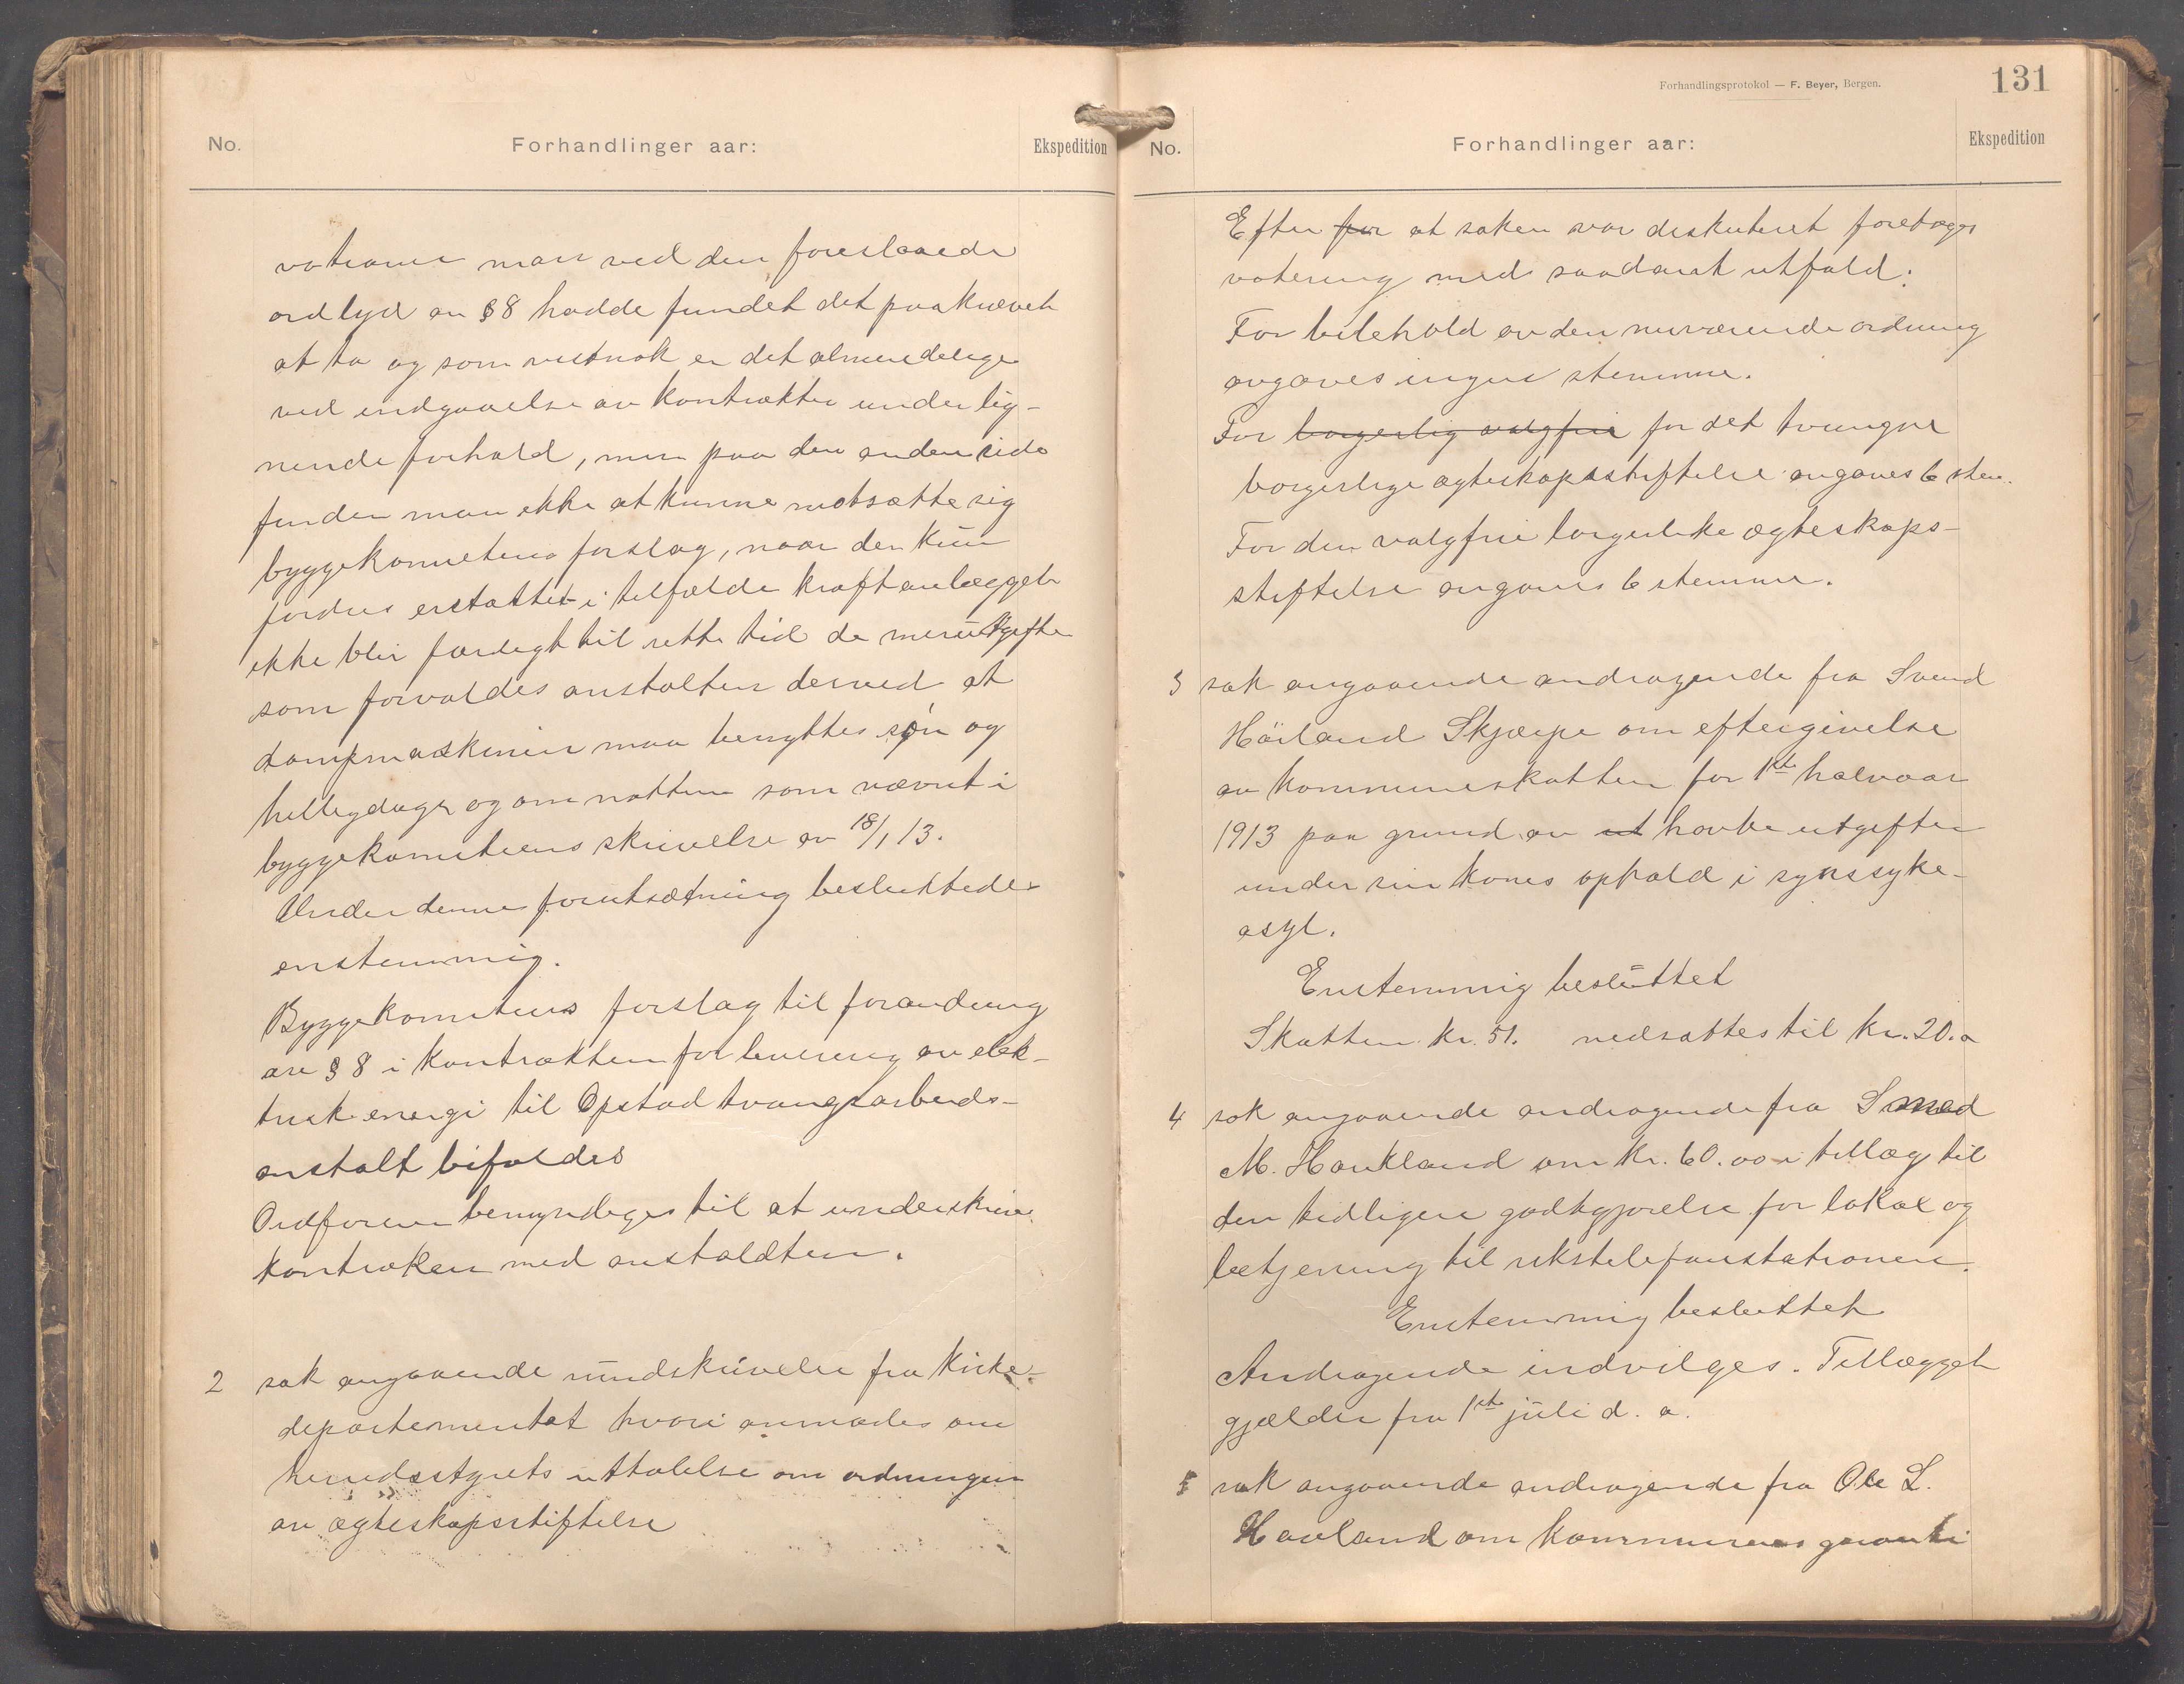 No.
Forhandlinger aar:
Ekspedition
vationer man ved den foreslaaede
ordlyd av §8 hadde fundet det paakrævet
at ta og som vistnok er det almindelige
ved indgaaelse av kontrakter under lig-
nende forhold, men paa den anden side
finder man ikke at kunne motsætte sig
byggekomiteens forslag, naar der kun
fordres erstattet i tilfælde kraftanlægget
ikke blir færdigt til rette tid de merutgifter
som forvoldes anstalten derved at
dampmaskinen maa benyttes søn og
helligdager og om natten som nævnt i
byggekomiteens skrivelse av 18/1 13.
Under denne forutsætning besluttedes
enstemmig.
Byggekomiteens forslag til forandring
av § 8 i kontrakten for levering av elek-
trisk energi til Opstad tvangsarbeids-
anstalt bifaldes
Ordføreren bemyndiges til at underskrive
kontrakten med anstaldten.
2 sak angaaende rundskrivelse fra Kirke-
departementet hvori anmodes om
herredsstyrets uttalelse om ordningen
av ægteskapsstiftelse
Forhandlingsprotokol — F. Beyer, Bergen.
131
No.
Forhandlinger aar:
Ekspedition
Efter for at saken var diskuteret foretoges
votering med saadant utfald:
For bibehold av den nuværende ordning
avgaves ingen stemme.
For borgerlig valgfrie for det tvungne
borgerlige ægteskapsstiftelse avgaves 6 stem.
For den valgfrie borgerlike ægteskaps-
stiftelse avgaves 6 stemmer.
3 sak angaaende andragende fra Svend
Håvland Skjærpe om eftergivelse
av kommuneskatten for 1ste halvaar
1913 paa grund av ut havte utgifter
under sin kones ophold i synssyke-
asyl.
Enstemmig besluttet
Skatten kr. 51. nedsattes til kr. 20.
4 sak angaaende andragende fra Smed
M. Haukland om kr. 60.00 i tillæg til
den tidligere godtgjørelse for lokal og
betjening til rikstelefonstationen.
Enstemmig besluttet
Andragende indvilges. Tillægget
gjælder fra 1ste juli d. a.
5 sak angaaende andragende fra Ole L.
Haaland om kommunens garanti